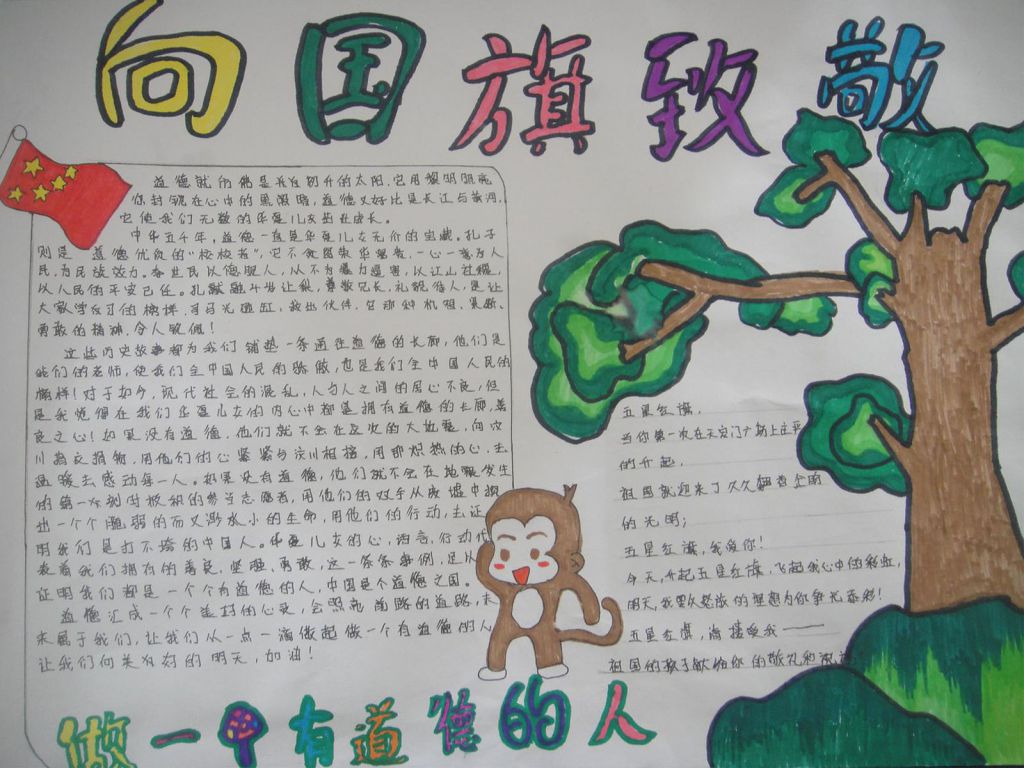 向国旗致敬
道德就仿佛是我们刚升的太阳，它用黎明明亮
你封锁在心中的黑漆暗，道德又好比是长江与黄河，
它使我们无数的华夏儿女茁壮成长。
中华五千年，道德一直是华夏儿女无价的宝藏。孔子
则是
道德优良的
民，为民族效力。
以人民的平安为己任。孔融融十岁让梨，尊敬兄长，礼貌待人，是让
大家学习的榜样，司马光砸缸，救出伙伴，它那种机智、果断、
勇敢的精神，令人敬佩！
这些历史故事都为我们铺垫一条通往道德的长廊，他们是
咱们的老师，使我们全中国人民的骄傲，也是我们全中国人民的
榜样！对于如今，现代社会的混乱，人与人之间的居心不良，但
是我觉得在我们华夏儿女的内心中都是拥有道德的长廊，善
良之心！如果没有道德，他们就不会在这次的大地震，向汶
川为灾捐物，用他们的心紧紧与汶川相接，用那炽热的心，去
温暖去感动每一人。如果没有道德，他们就不会在地震发生
的第一次刻时极积的参与志愿者，用他们的双手从废墟中挽
出一个个脆弱的而又渺小的生命，用他们的行动，去证
明我们是打不垮的中国人。华夏儿女的心，语言，行动代
表着我们拥有的善良，坚强，勇敢，这一条条事例，足以
证明我们都是一个个有道德的人，中国是个道德之国。
道德汇成一个个
未属于我们，让我们从一点一滴做起做一个有道德的人
让我们向美好的明天，加油！
五星红旗，
当你第一次在天安门广场上庄严
的升起，
祖国就迎来了久久翻
的光明；
五星红旗，我爱你！
今天，升起五星红旗，飞起我心中的彩虹，
明天，我要以
的理想为你争光添彩！
五星红旗，请接受我——
祖国的孩子献给你的敬礼和
做一个有道德的人